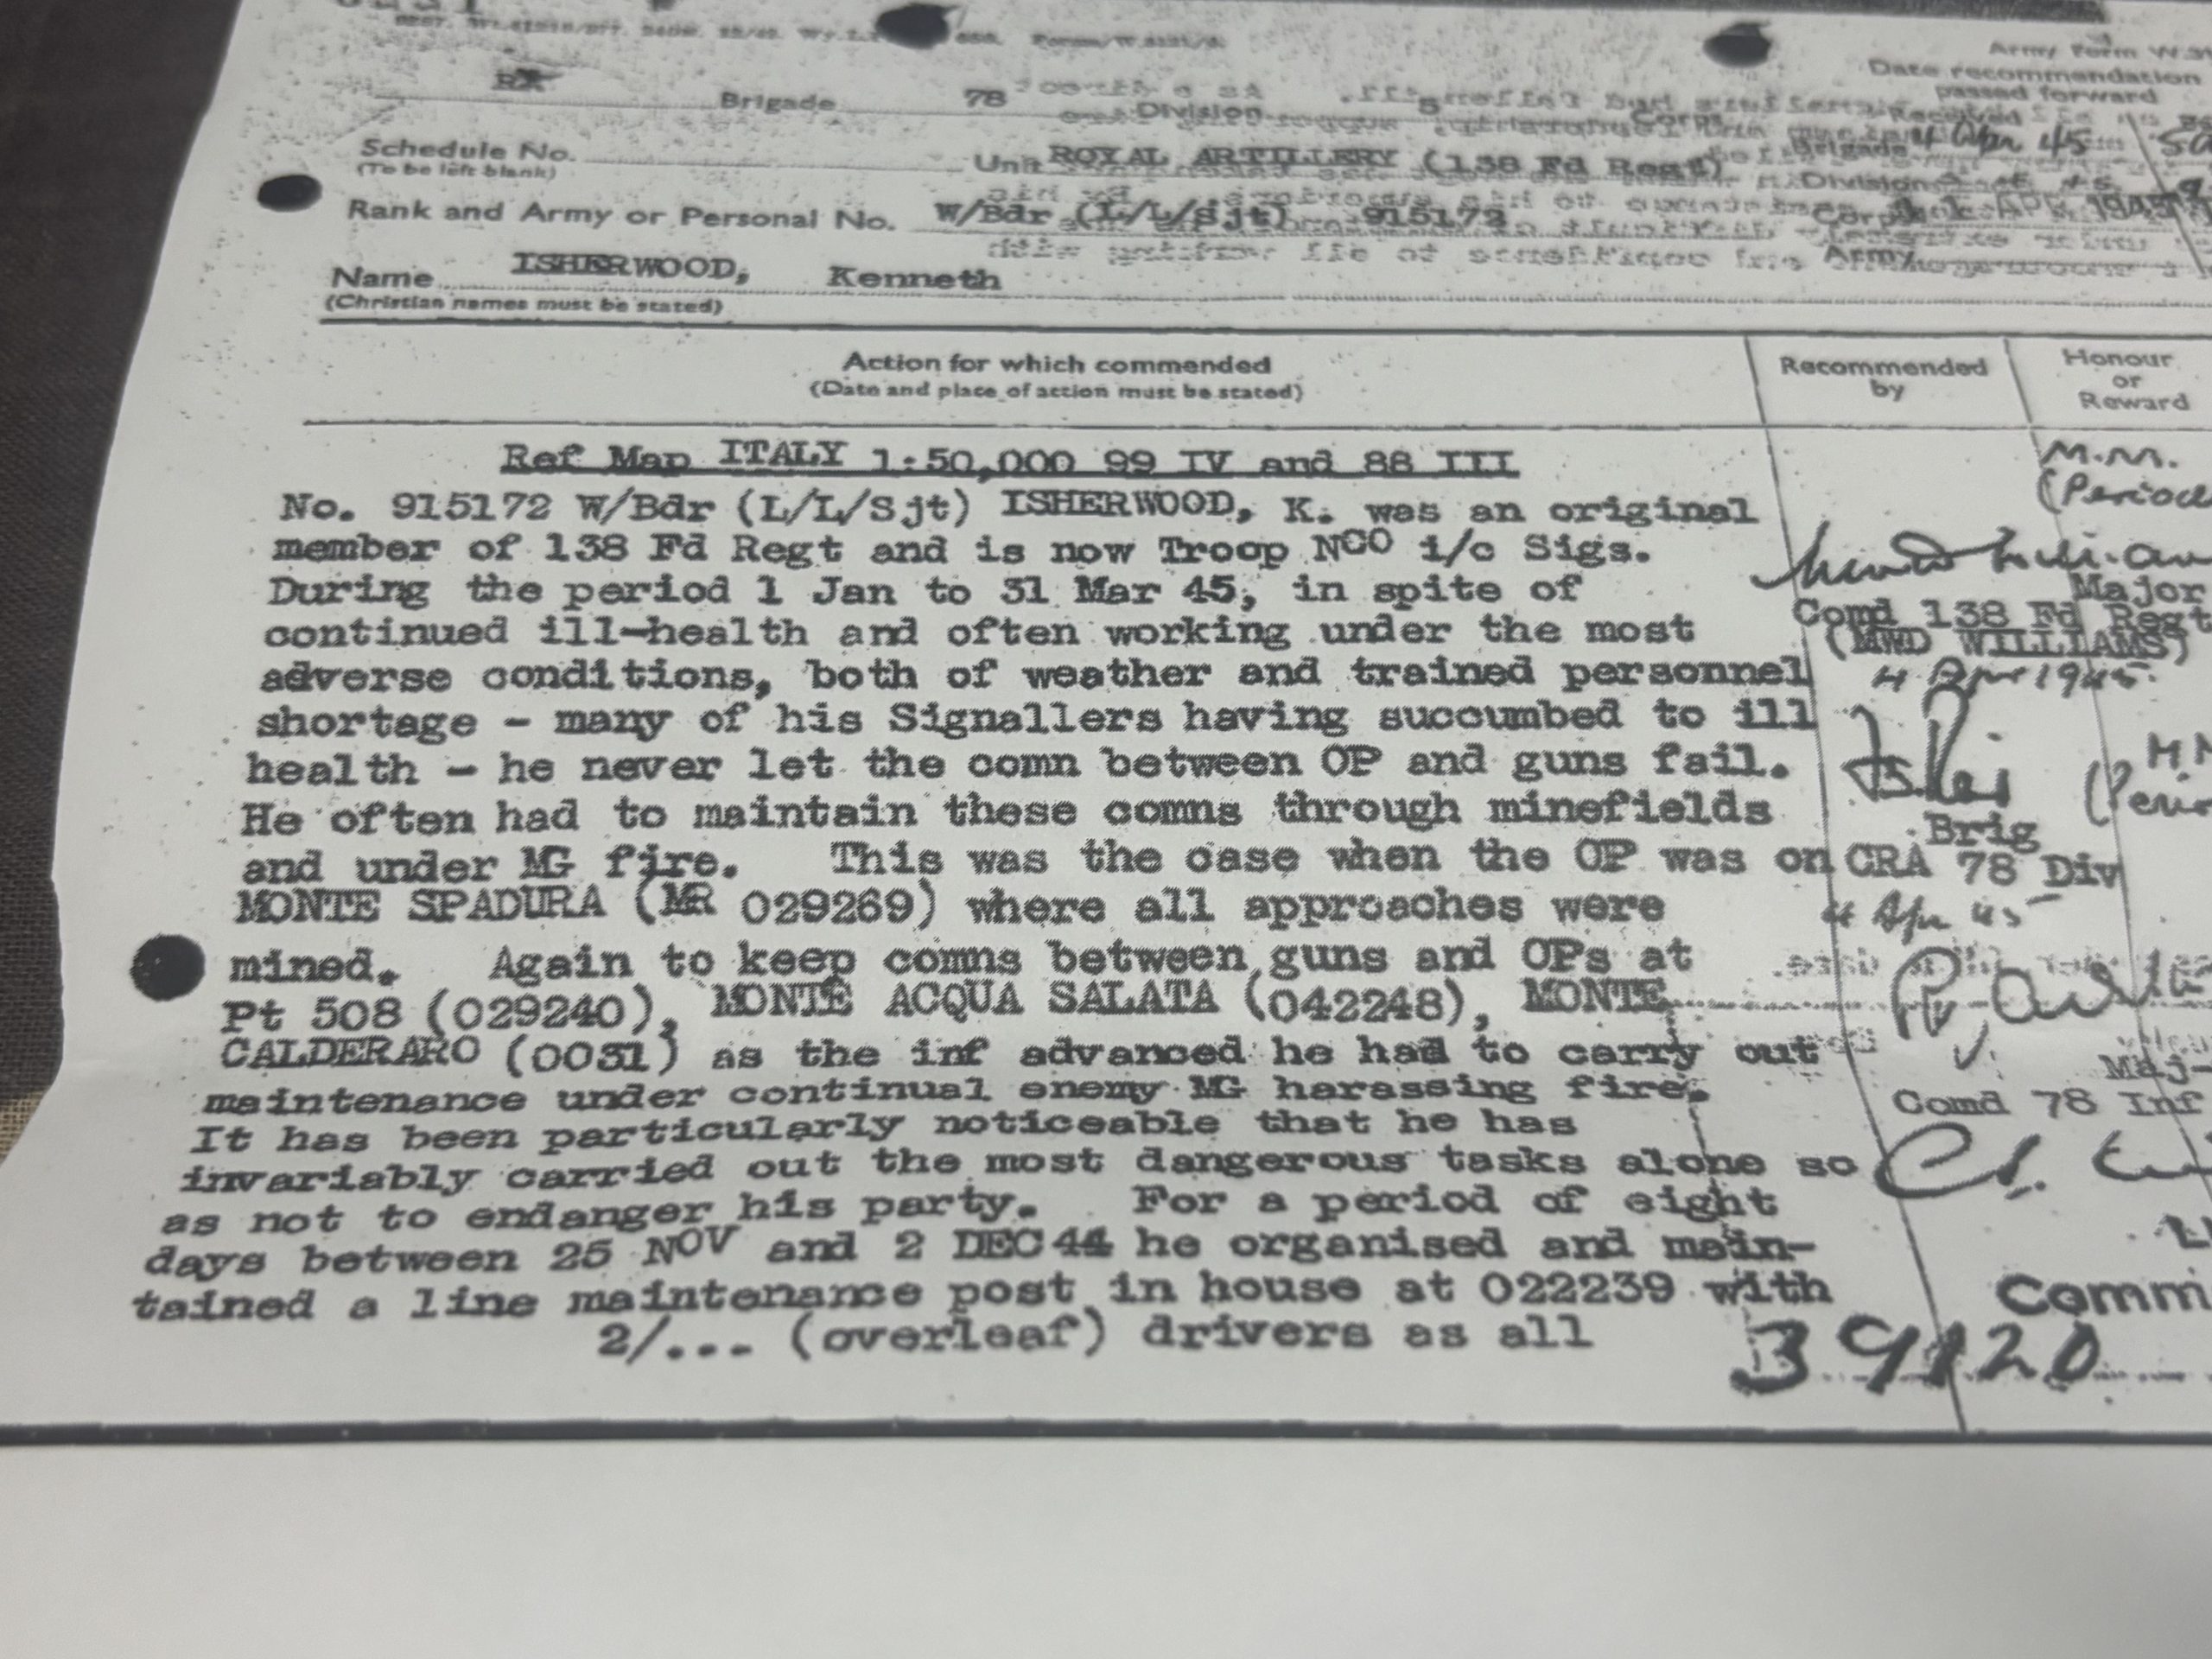 Army Form W.
Date recommendation
passed forward
Brigade 78 Division Corps Received
Schedule No. Unit ROYAL ARTILLERY (138 Fd Regt) Brigade 4 Apr 45
(To be left blank) Division
Rank and Army or Personal No. W/Bdr (L/L/Sjt) 915172 Corps APR 1945
Name ISHERWOOD, Kenneth Army
(Christian names must be stated)
Action for which commended
(Date and place of action must be stated)
Recommended
by
Honour
or
Reward
Ref Map ITALY 1:50,000 99 IV and 88 III
No. 915172 W/Bdr (L/L/Sjt) ISHERWOOD, K. was an original
member of 138 Fd Regt and is now Troop NCO i/c Sigs.
During the period 1 Jan to 31 Mar 45, in spite of
continued ill-health and often working under the most
adverse conditions, both of weather and trained personnel
shortage - many of his Signallers having succumbed to ill
health - he never let the comn between OP and guns fail.
He often had to maintain these comns through minefields
and under MG fire. This was the case when the OP was on
MONTE SPADURA (MR 029269) where all approaches were
mined. Again to keep comns between guns and OPs at
Pt 508 (029240), MONTE ACQUA SALATA (042248), MONTE
CALDERARO (0031) as the inf advanced he had to carry out
maintenance under continual enemy MG harassing fire.
It has been particularly noticeable that he has
invariably carried out the most dangerous tasks alone so
as not to endanger his party. For a period of eight
days between 25 NOV and 2 DEC 44 he organised and main-
tained a line maintenance post in house at 022239 with
2/... (overleaf) drivers as all
M.M.
(Period
Major
Comd 138 Fd Regt
(MWD WILLIAMS)
4 Apr 1945.
Brig
CRA 78 Div
4 Apr 45
Maj-
Comd 78 Inf
Comm
39120